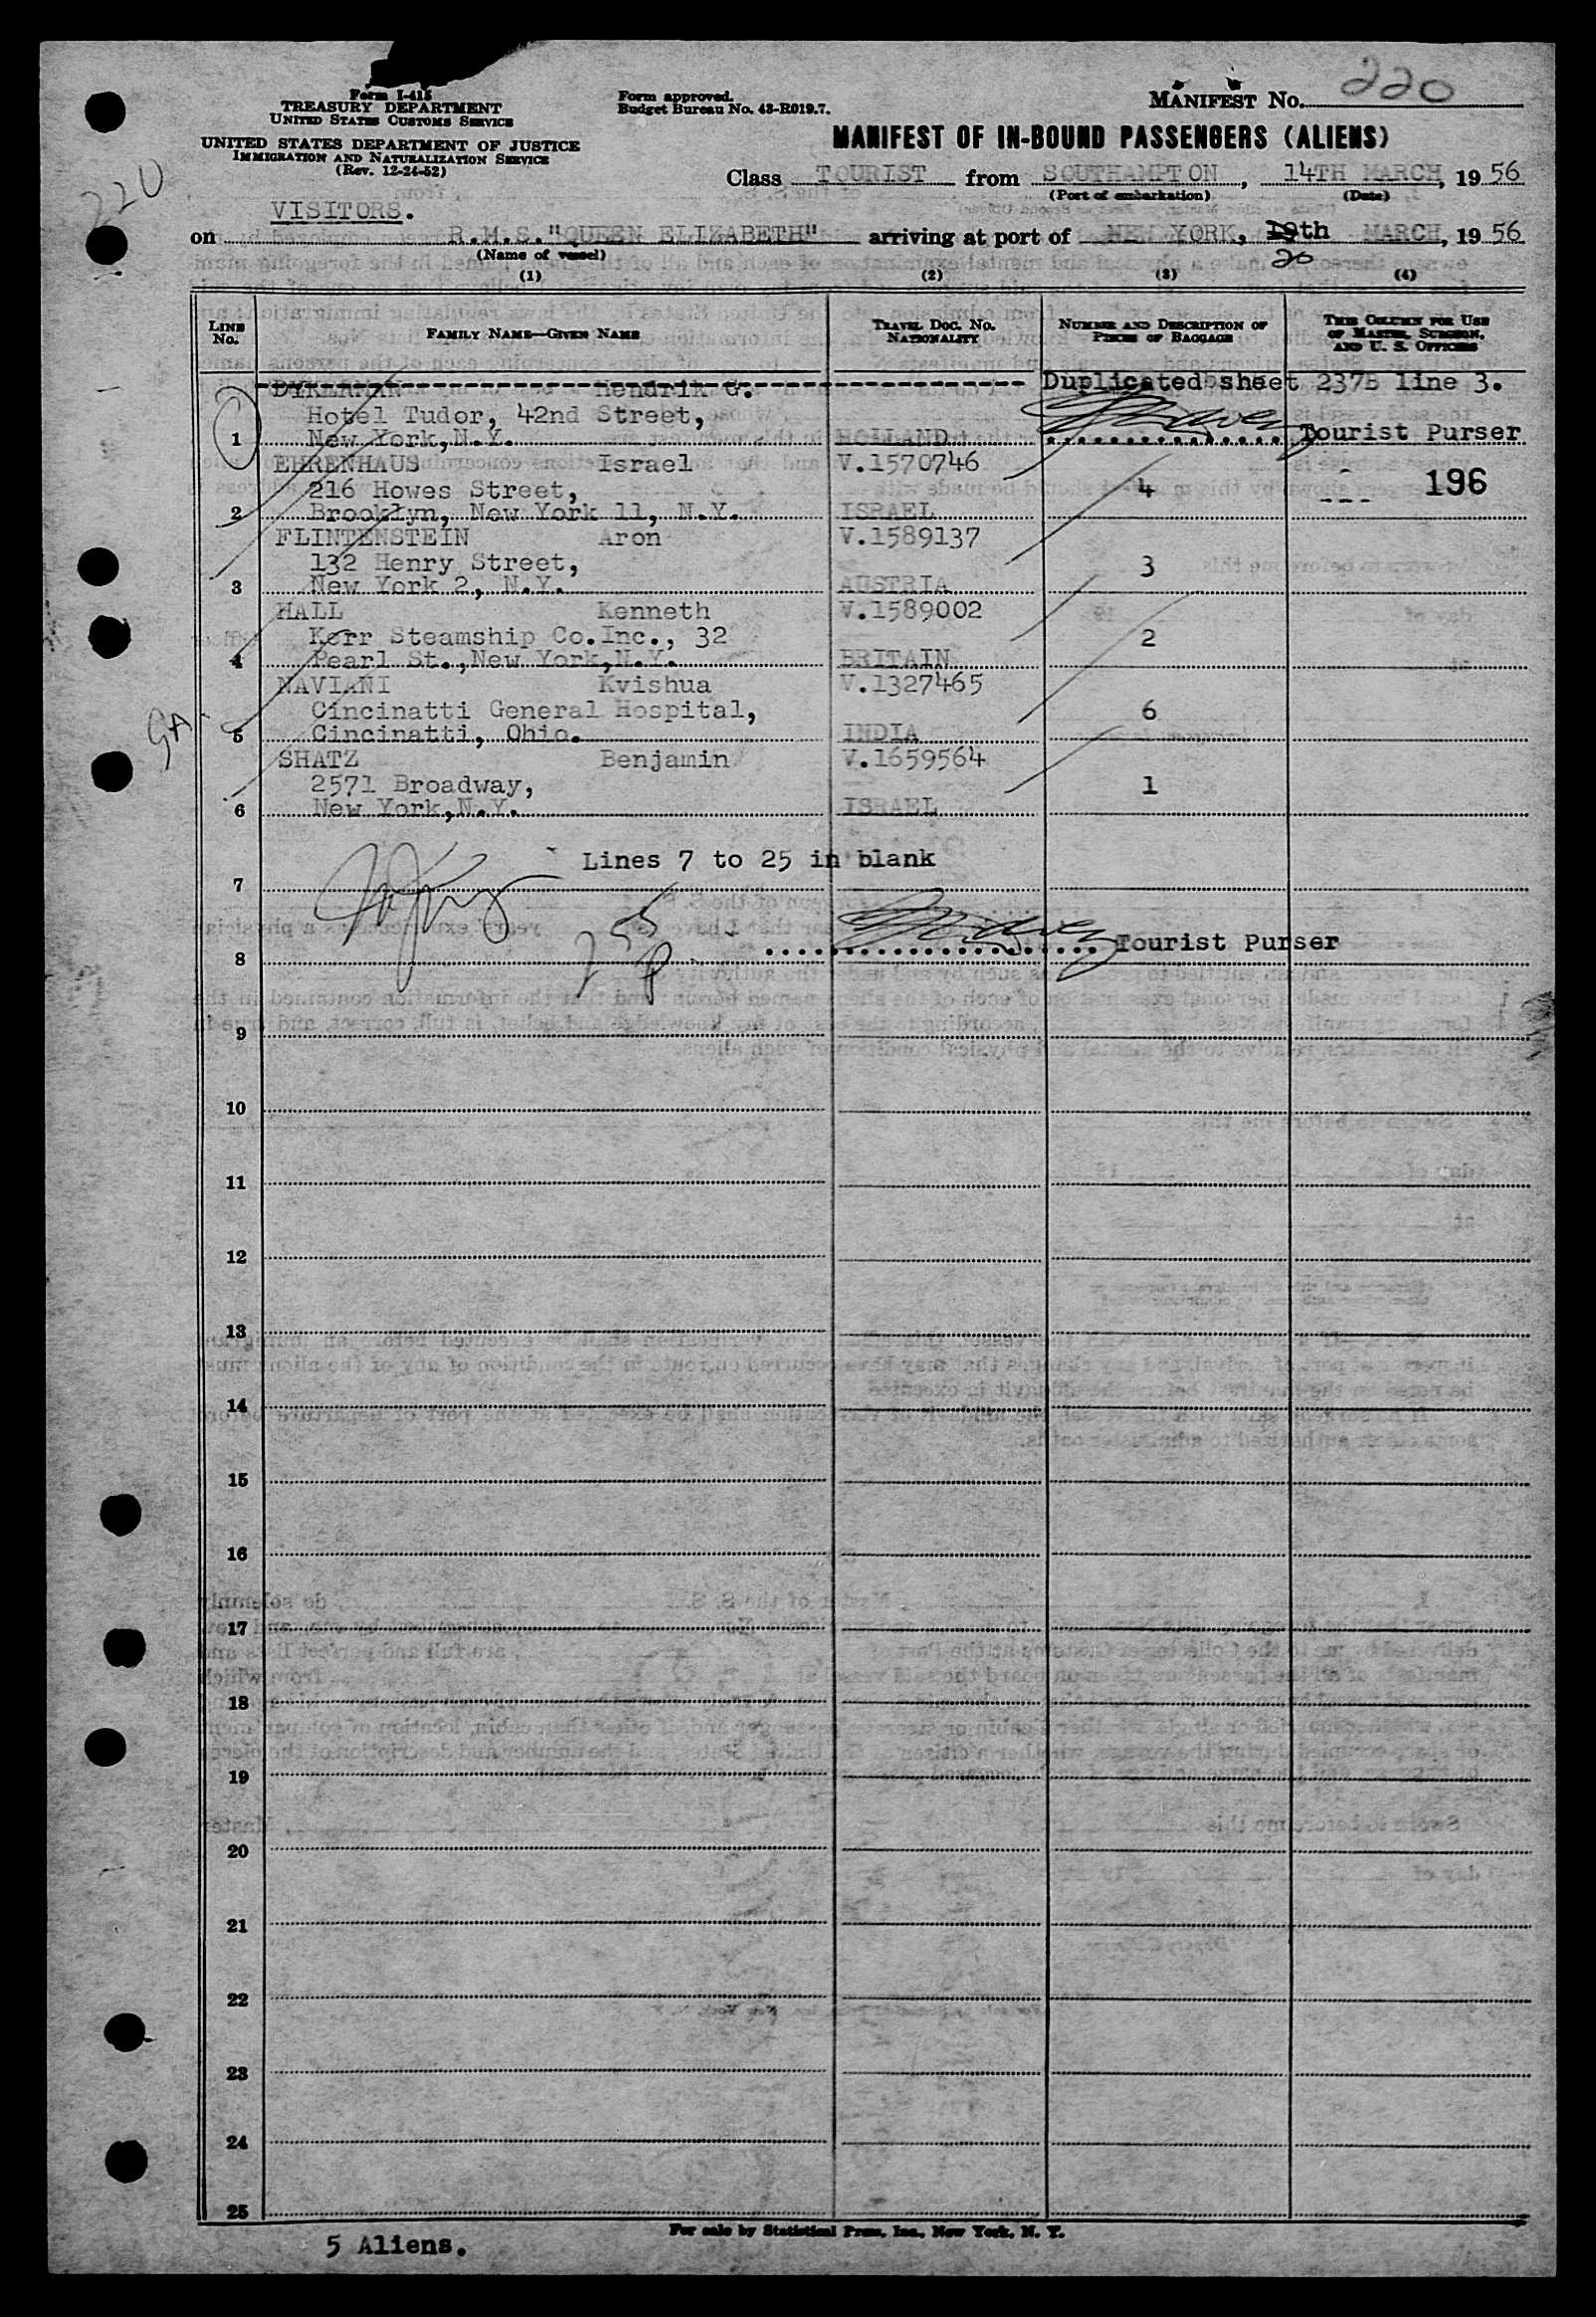 Form I-415
TREASURY DEPARTMENT
UNITED STATES CUSTOMS SERVICE
UNITED STATES DEPARTMENT OF JUSTICE
IMMIGRATION AND NATURALIZATION SERVICE
(Rev. 12-24-52)
Form approved.
Budget Bureau No. 43-R019.7.
MANIFEST No. 220
220
MANIFEST OF IN-BOUND PASSENGERS (ALIENS)
Class TOURIST from SOUTHAMPTON, 14TH MARCH, 1956
(Port of embarkation) (Date)
VISITORS.
on R.M.S."QUEEN ELIZABETH" arriving at port of NEW YORK, 19th MARCH, 1956
20
(Name of vessel)
(1) (2) (3) (4)
LINE No. FAMILY NAME—GIVEN NAME TRAVEL DOC. No. NATIONALITY NUMBER AND DESCRIPTION OF PIECES OF BAGGAGE THIS COLUMN FOR USE OF MASTER, SURGEON, AND U. S. OFFICERS
DYKERMAN Hendrik G. Duplicated sheet 237B line 3.
Hotel Tudor, 42nd Street,
1 New York,N.Y. HOLLAND Tourist Purser
EHRENHAUS Israel V.1570746
216 Howes Street, 4 196
2 Brooklyn, New York 11, N.Y. ISRAEL
FLINTENSTEIN Aron V.1589137
132 Henry Street, 3
3 New York 2, N.Y. AUSTRIA
HALL Kenneth V.1589002
Kerr Steamship Co.Inc., 32 2
4 Pearl St.,New York,N.Y. BRITAIN
NAVIANI Kvishua V.1327465
Cincinatti General Hospital, 6
5 Cincinatti, Ohio. INDIA
SHATZ Benjamin V.1659564
2571 Broadway, 1
6 New York,N.Y. ISRAEL
Lines 7 to 25 in blank
7
Tourist Purser
8
9
10
11
12
13
14
15
16
17
18
19
20
21
22
23
24
25
For sale by Statistical Press, Inc., New York, N. Y.
5 Aliens.